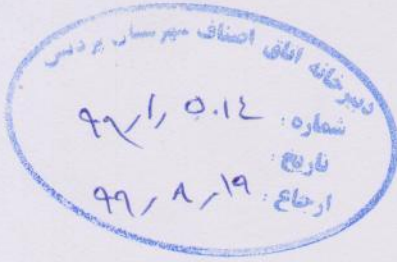 دبیرخانه اتاق اصناف شهرستان پردیس
شماره: ۹۹/۱/۵۰۱۴
تاریخ:
۹۹/۸/۱۹
ارجاع: